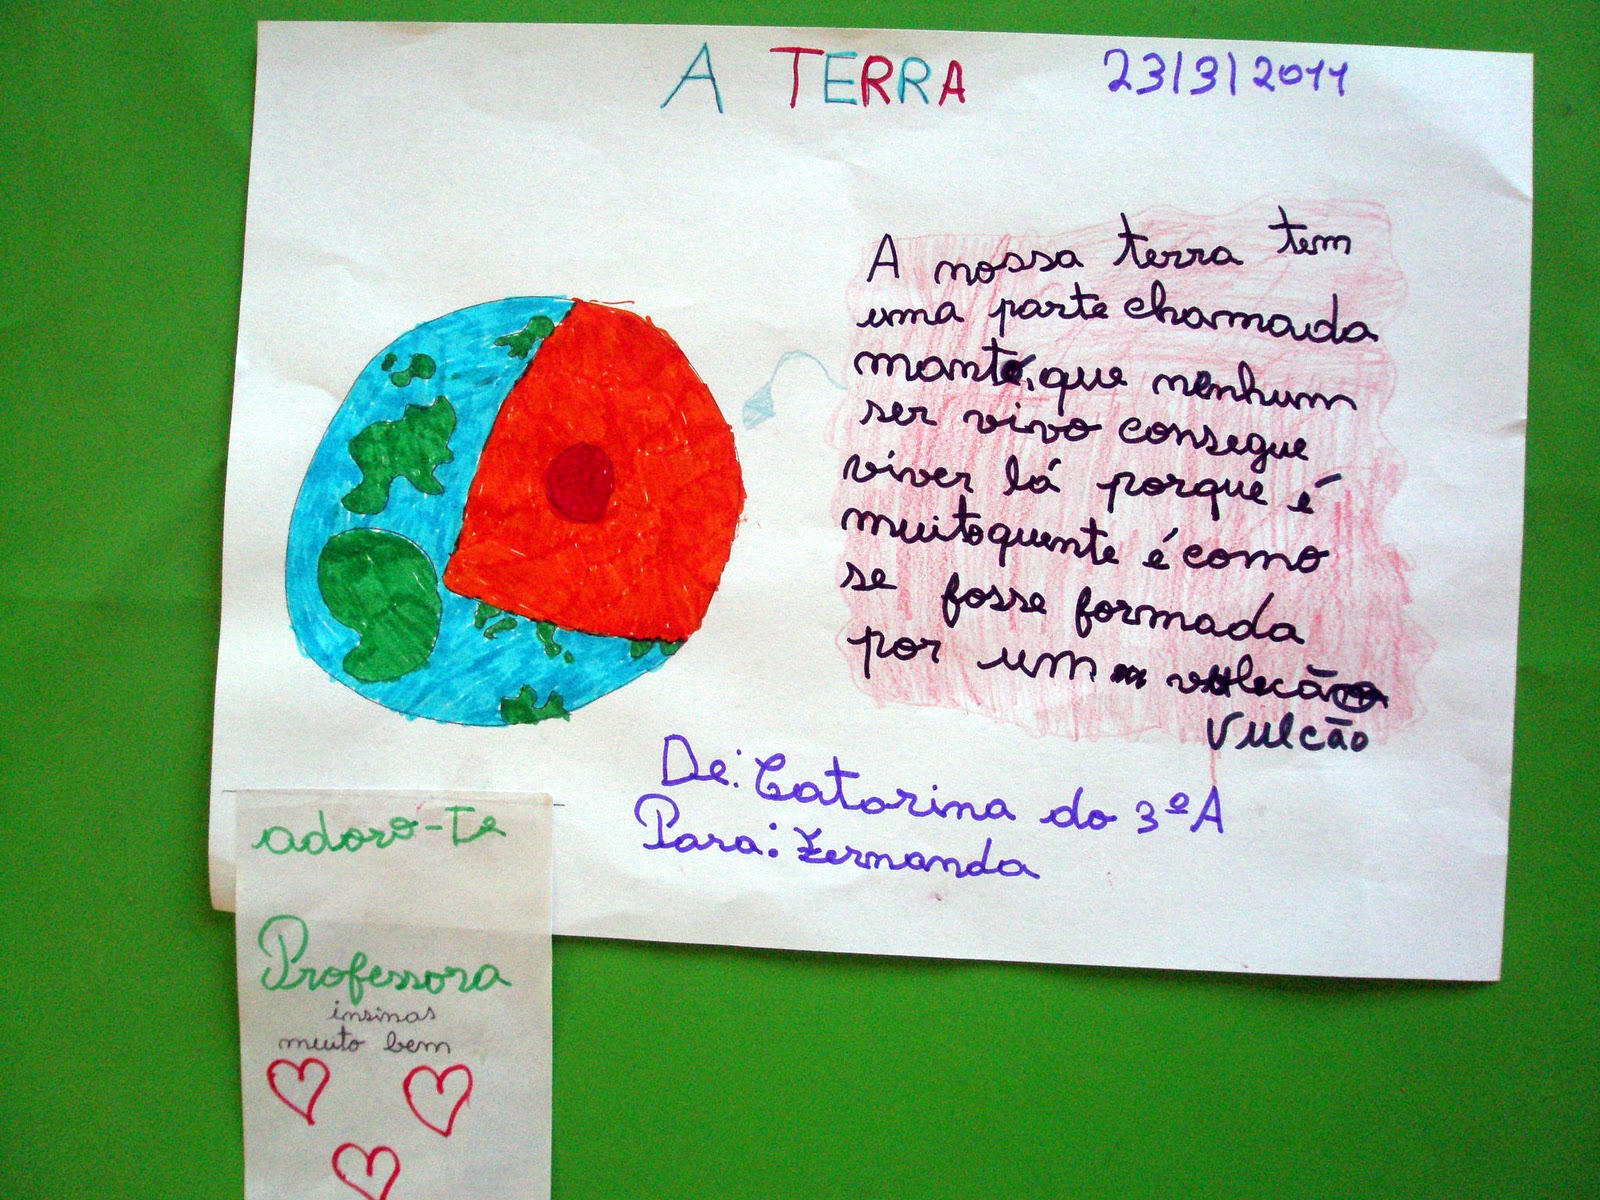 A TERRA
23/3/2011
A nossa terra tem
uma parte chamada
manto, que nenhum
ser vivo consegue
viver lá porque é
muito quente é como
se fosse formada
por um vulcão
vulcão
De: Catarina do 3ºA
Para: Fernanda
adoro-Te
Professora
insinas
muito bem